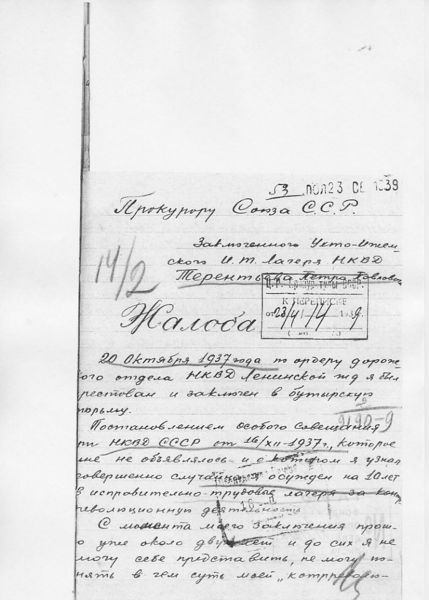 53 ПОЛ 23 СЕ 1939
Прокурору Союза С.С.Р.
Заключенного Ухто-Ижем
ского И.Т. Лагеря НКВД
14/2
Терентьева Петра Павлович
К ПЕРЕПИСКЕ
от
Жалоба
20 Октября 1937 года по ордеру дорож
ого отдела НКВД Ленинской жд я был
рестован и заключен в бутирскую
юрьму.
9190-9
Постановлением особого совещания
ри НКВД СССР от 16/XII-1937г, которое
не не объявлялось и о котором я узнал
совершенно случайно я осужден на 10 лет
в исправительно-трудовые лагеря за конт
революционную деятельность
С момента моего заключения прош
о уже около двух лет и до сих я не
могу себе представить, не могу по
нять в чем суть моей „контрревол